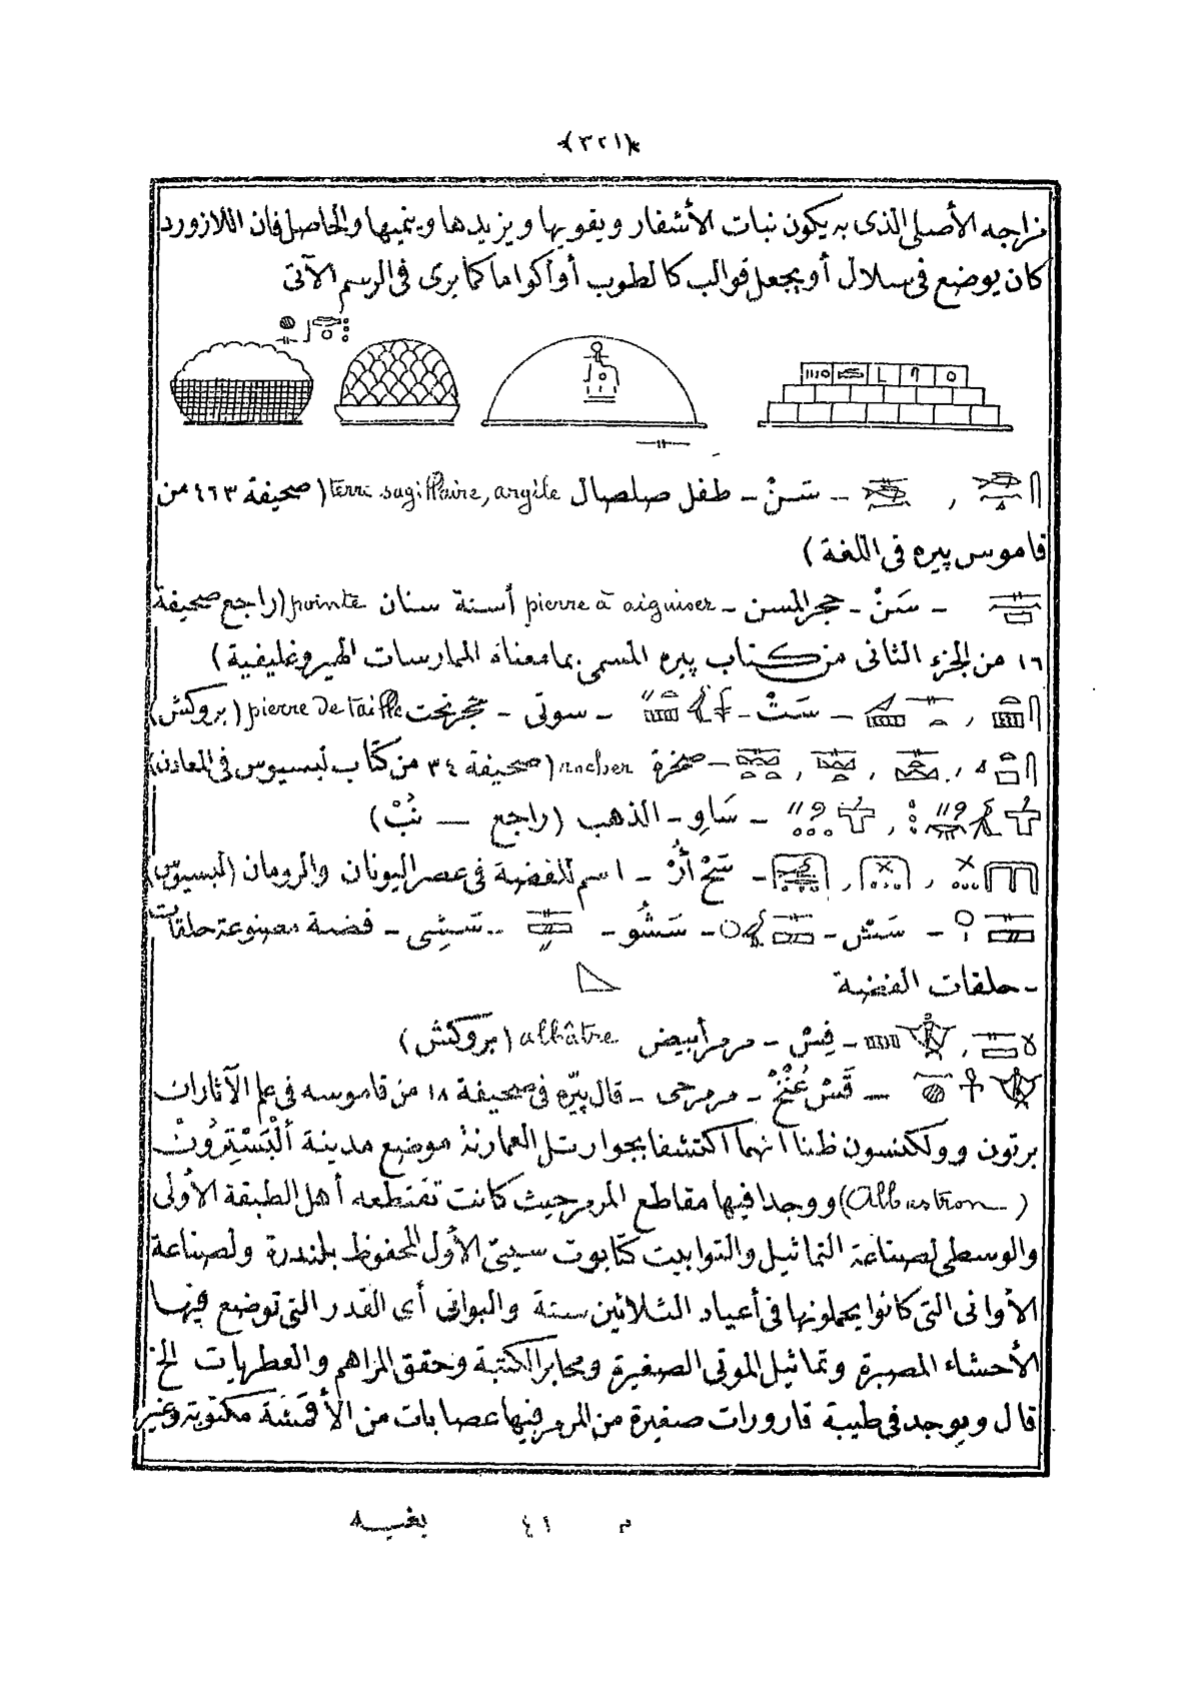 (٣٢١)
مزاجه الأصلى الذى به يكون نبات الأشفار ويقويها ويزيدها وينميها والحاصل فان اللازورد
كان يوضع فى سلال أو يجعل قوالب كالطوب أو أكواما كما يرى فى الرسم الآتى
، – سَنْ – طفل صلصال terre sagillaire, argile (صحيفة ٤٦٣ من
قاموس پيره فى اللغة)
– سَنْ – حجر المسن – pierre à aiguiser أسنة سنان pointe (راجع صحيفة
١٦ من الجزء الثانى من كتاب پيره المسمى بما معناه الممارسات الهيروغليفية)
، ، – سَتْ – – سوتى – حجر نحت pierre de taille (بروكش)
، ، ، – صخرة rocher (صحيفة ٣٤ من كتاب لبسيوس فى المعادن)
، – سَاوِ – الذهب (راجع – نُبْ)
، ، – سَحْ أُزْ – اسم للفضة فى عصر اليونان والرومان (لبسيوس)
– سَشْ – – سَشُو – – سَشِى – فضة مصنوعة حلقات
– حلقات الفضة
، – قِسْ – مرمر أبيض albâtre (بروكش)
– قَسْ عُنْخْ – مرمر حى – قال پيره فى صحيفة ١٨ من قاموسه فى علم الآثار ان
برتون وولكنسون ظنا أنهما اكتشفا بجوار تل العمارنة موضع مدينة أَلْبَسْتِرُونْ
(Albastron) ووجدا فيها مقاطع المرمر حيث كانت تقتطعه أهل الطبقة الأولى
والوسطى لصناعة التماثيل والتوابيت كتابوت سيتى الأول المحفوظ بلندرة ولصناعة
الأوانى التى كانوا يحملونها فى أعياد الثلاثين سنة والبوانى أى القدر التى توضع فيها
الأحشاء المصبرة وتماثيل الموتى الصغيرة ومحابر الكتبة وحقق المراهم والعطريات الخ
قال ويوجد فى طيبة قارورات صغيرة من المرمر فيها عصابات من الأقمشة مكتوبة وغير
م ٤١ بغيه